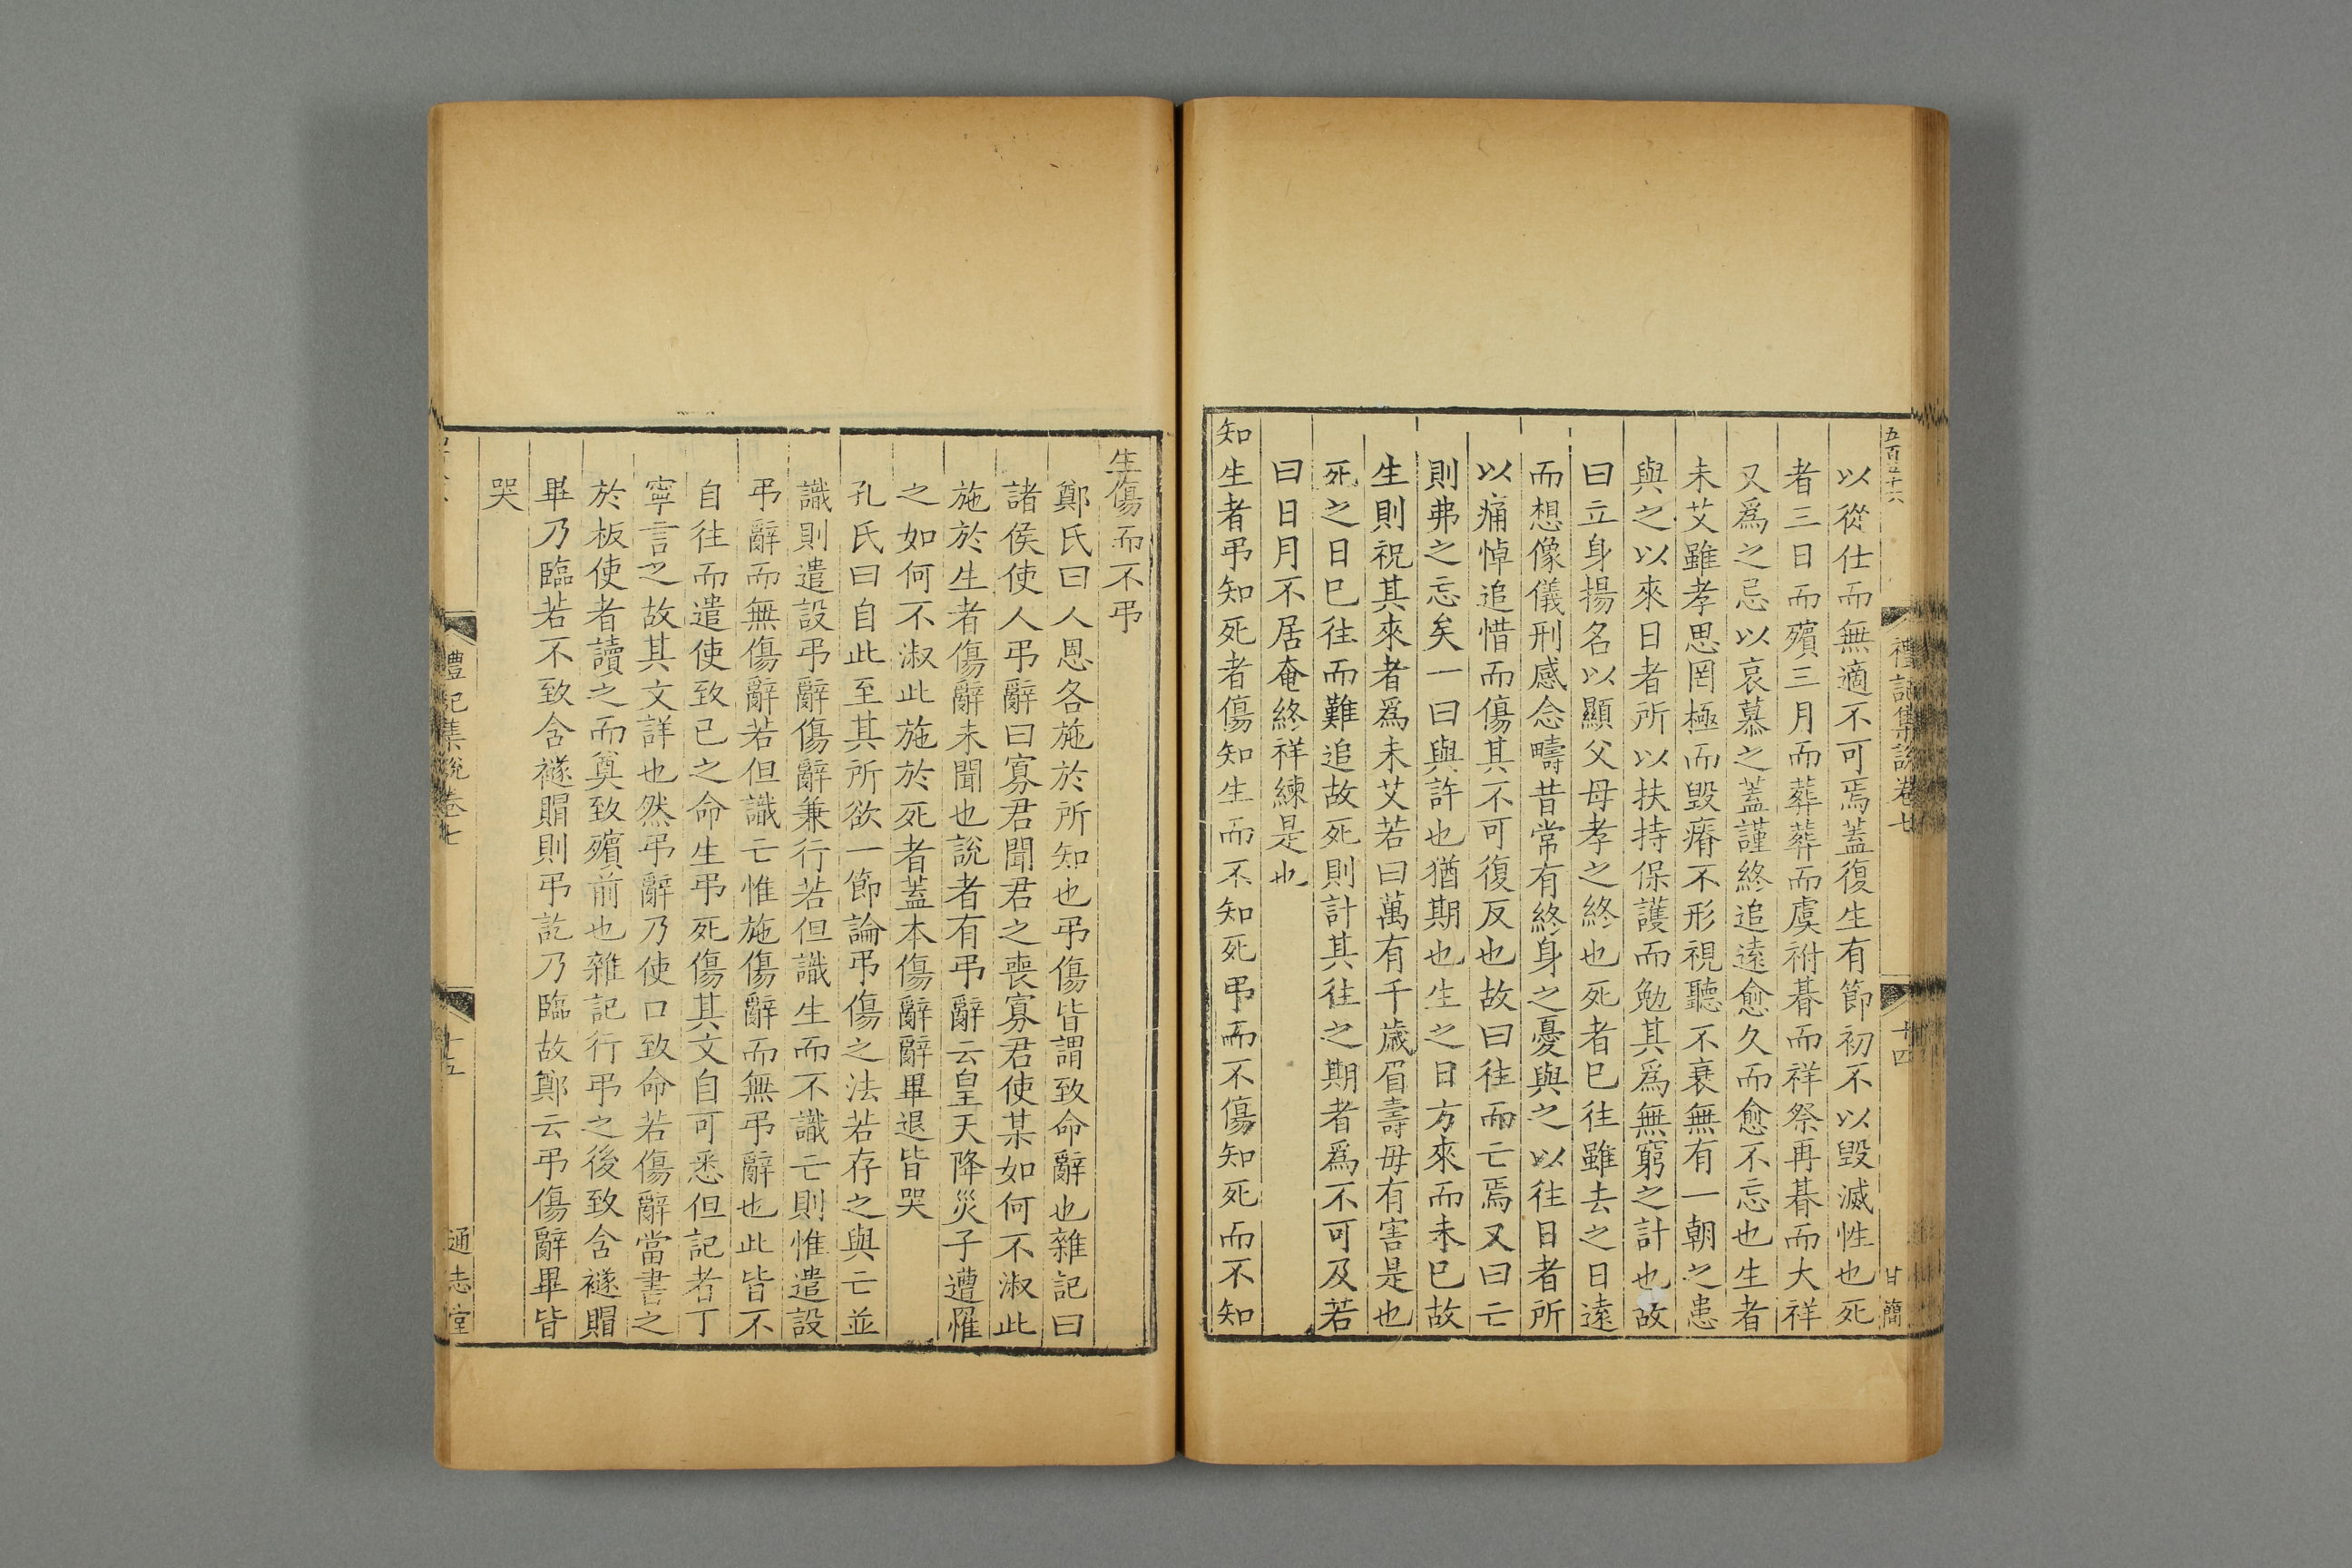 五百五十六
禮記集說卷七
十四
甘簡
以從仕而無適不可焉蓋復生有節初不以毀滅性也死
者三日而殯三月而葬葬而虞祔朞而祥祭再朞而大祥
又爲之忌以哀慕之蓋謹終追遠愈久而愈不忘也生者
未艾雖孝思罔極而毀瘠不形視聽不衰無有一朝之患
與之以來日者所以扶持保護而勉其爲無窮之計也故
曰立身揚名以顯父母孝之終也死者巳往雖去之日遠
而想像儀刑感念疇昔常有終身之憂與之以往日者所
以痛悼追惜而傷其不可復反也故曰往而亡焉又曰亡
則弗之忘矣一曰與許也猶期也生之日方來而未巳故
生則祝其來者爲未艾若曰萬有千歲眉壽毋有害是也
死之日巳往而難追故死則計其往之期者爲不可及若
曰日月不居奄終祥練是也
知生者弔知死者傷知生而不知死弔而不傷知死而不知
生傷而不弔
鄭氏曰人恩各施於所知也弔傷皆謂致命辭也雜記曰
諸侯使人弔辭曰寡君聞君之喪寡君使某如何不淑此
施於生者傷辭未聞也說者有弔辭云皇天降災子遭罹
之如何不淑此施於死者蓋本傷辭辭畢退皆哭
孔氏曰自此至其所欲一節論弔傷之法若存之與亡並
識則遣設弔辭傷辭兼行若但識生而不識亡則惟遣設
弔辭而無傷辭若但識亡惟施傷辭而無弔辭也此皆不
自往而遣使致已之命生弔死傷其文自可悉但記者丁
寧言之故其文詳也然弔辭乃使口致命若傷辭當書之
於板使者讀之而奠致殯前也雜記行弔之後致含襚賵
畢乃臨若不致含襚賵則弔訖乃臨故鄭云弔傷辭畢皆
哭
禮記集說卷七
十五
通志堂